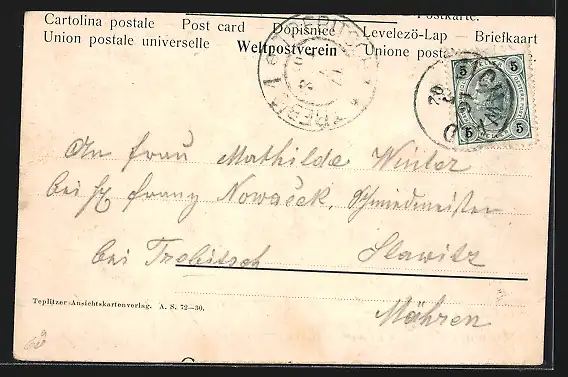 Postkarte.
Cartolina postale Post card Dopisnice Levelezö-Lap – Briefkaart
Union postale universelle Weltpostverein Unione posta
TREB
5 5
5 5
An Frau Mathilde Winter
bei H Franz Nowaček, Schmiedmeister
bei Trebitsch Slawitz
Mähren
Teplitzer Ansichtskartenverlag. A. S. 72—30.